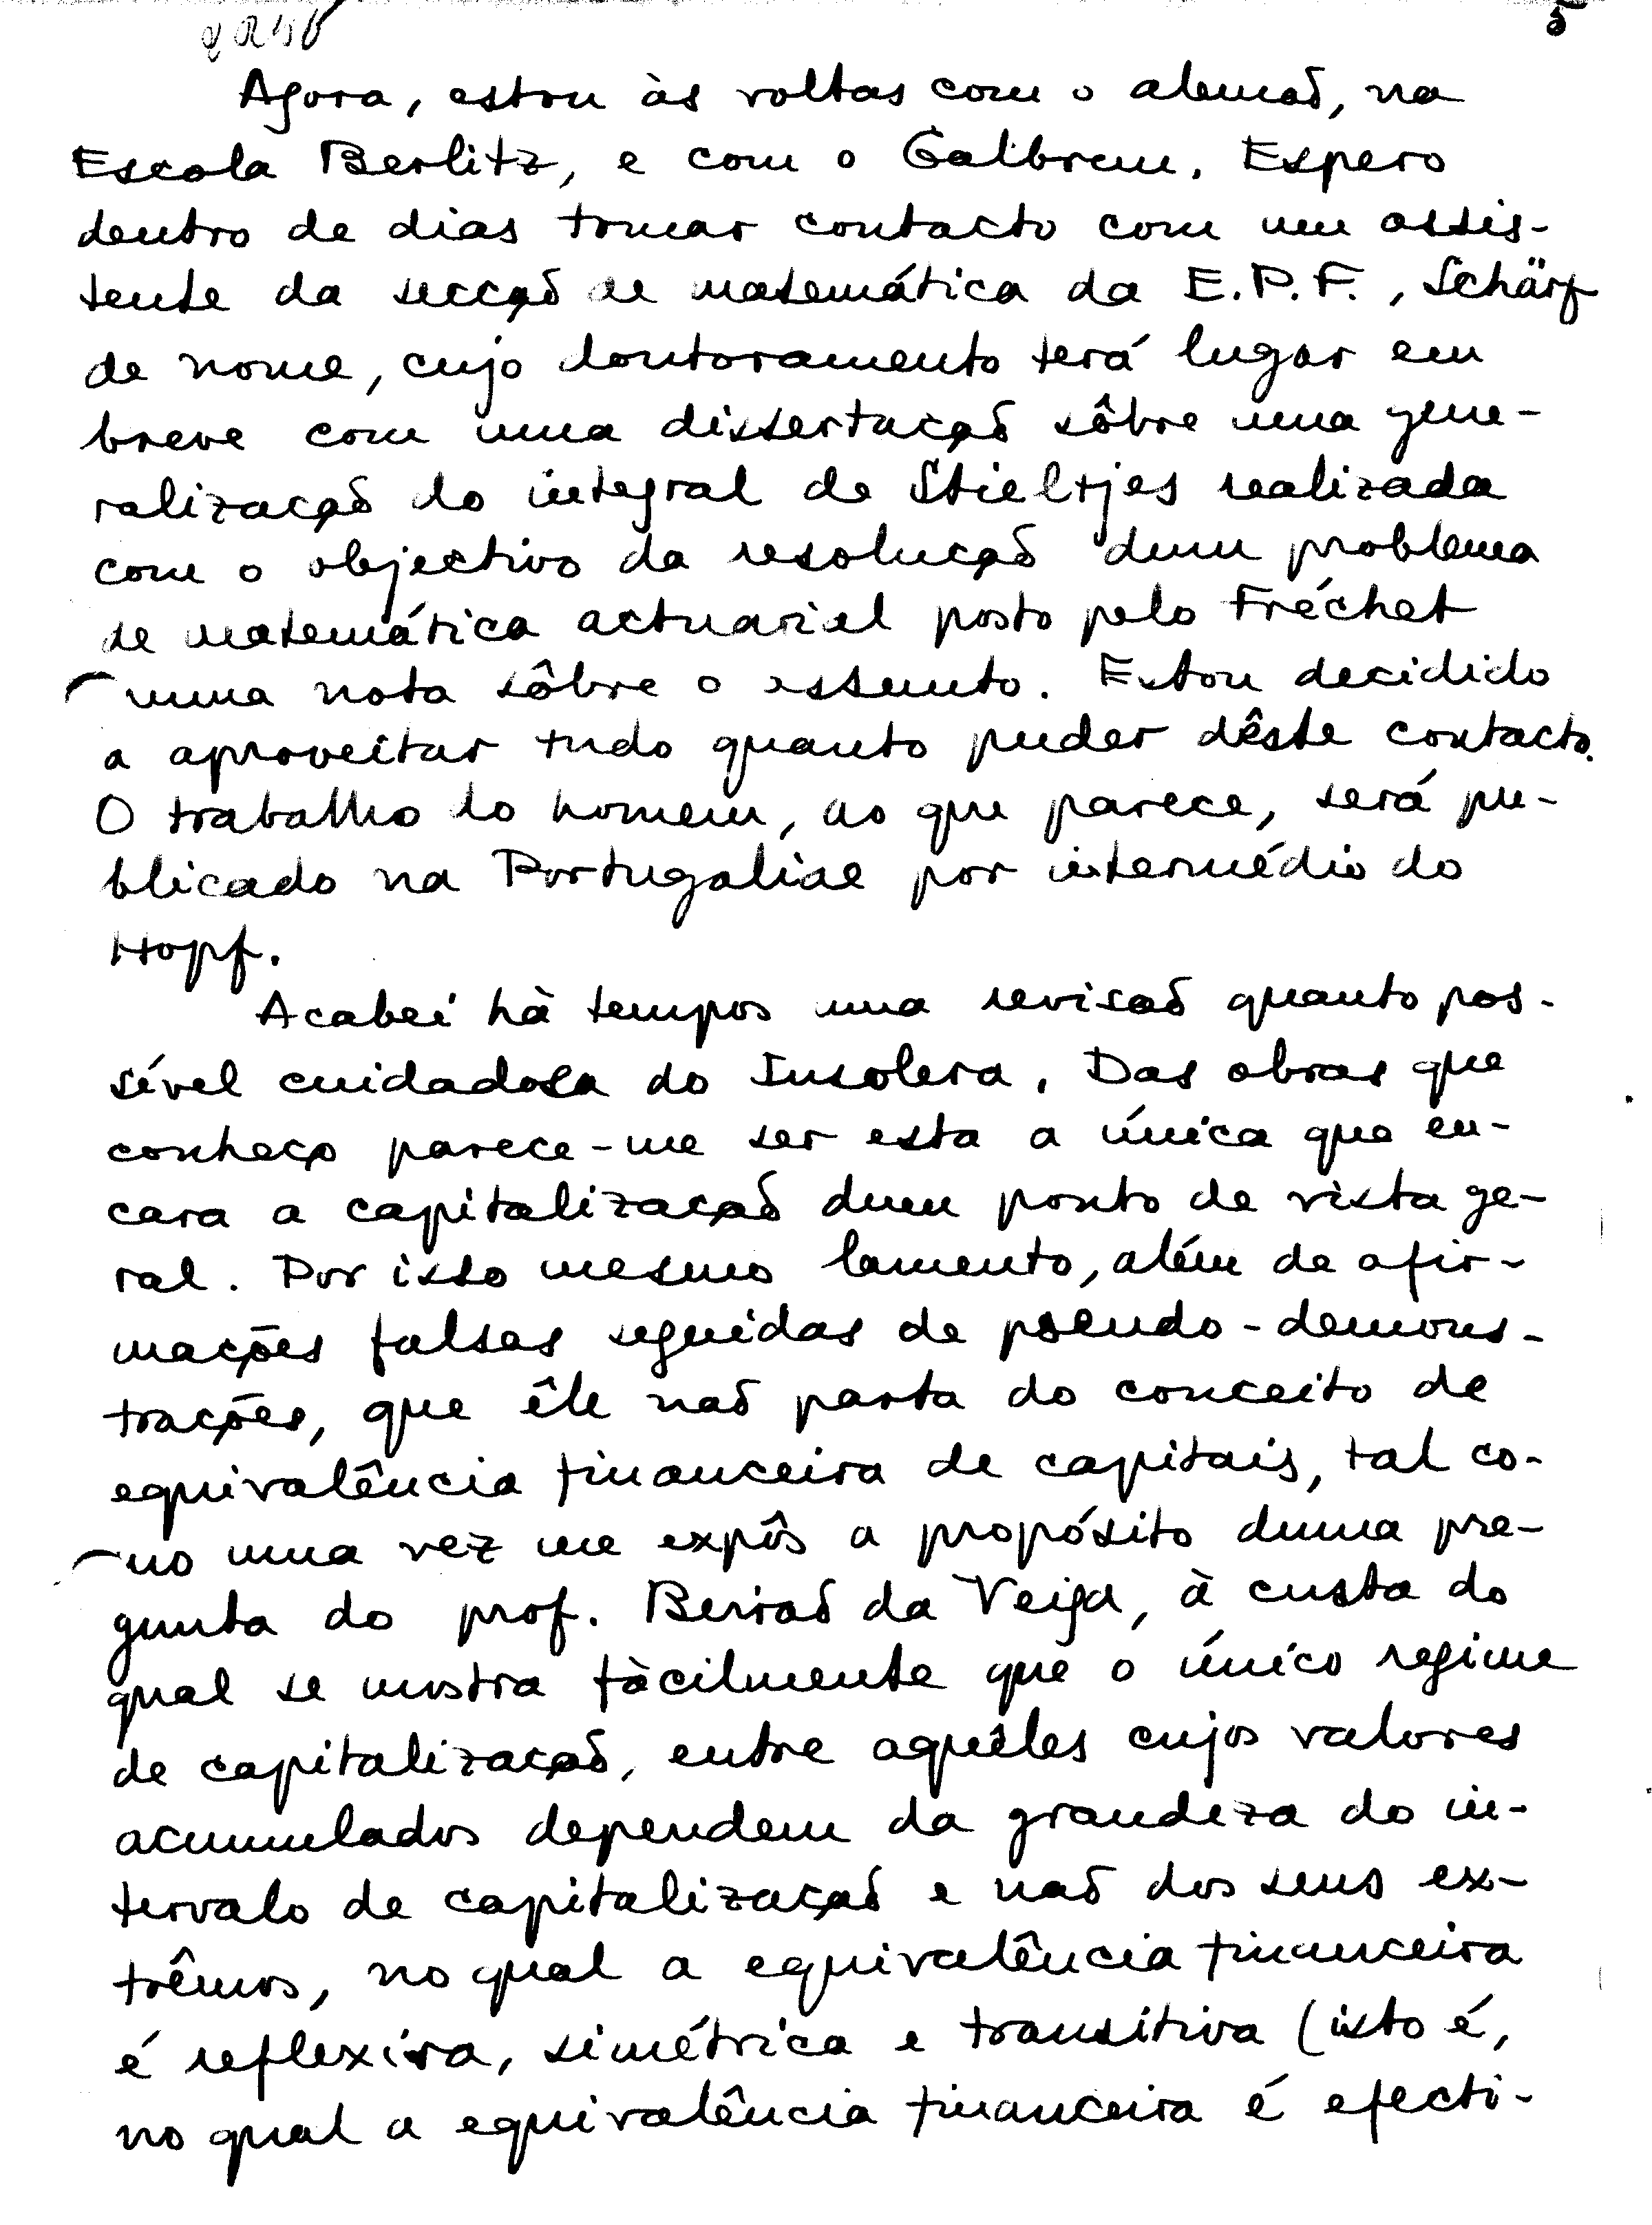 5
Agora, estou às voltas com o alemão, na
Escola Berlitz, e com o Galbrun. Espero
dentro de dias tomar contacto com um assis-
tente da secção de matemática da E.P.F., Schärf
de nome, cujo doutoramento terá lugar em
breve com uma dissertação sôbre uma gene-
ralização do integral de Stieltjes realizada
com o objectivo da resolução dum problema
de matemática actuarial posto pelo Fréchet
numa nota sôbre o assunto. Estou decidido
a aproveitar tudo quanto puder dêste contacto.
O trabalho do homem, ao que parece, será pu-
blicado na Portugaliae por intermédio do
Hopf.
Acabei hà tempos uma revisão quanto pos-
sível cuidadosa do Insolera. Das obras que
conheço parece-me ser esta a única que en-
cara a capitalização dum ponto de vista ge-
ral. Por isso mesmo lamento, além de afir-
mações falsas seguidas de pseudo-demons-
trações, que êle não parta do conceito de
equivalência financeira de capitais, tal co-
mo uma vez me expôs a propósito duma pre-
gunta do prof. Beirão da Veiga, à custa do
qual se mostra fàcilmente que o único regime
de capitalização, entre aquêles cujos valores
acumulados dependem da grandeza do in-
tervalo de capitalização e não dos seus ex-
trêmos, no qual a equivalência financeira
é reflexiva, simétrica e transitiva (isto é,
no qual a equivalência financeira é efecti-